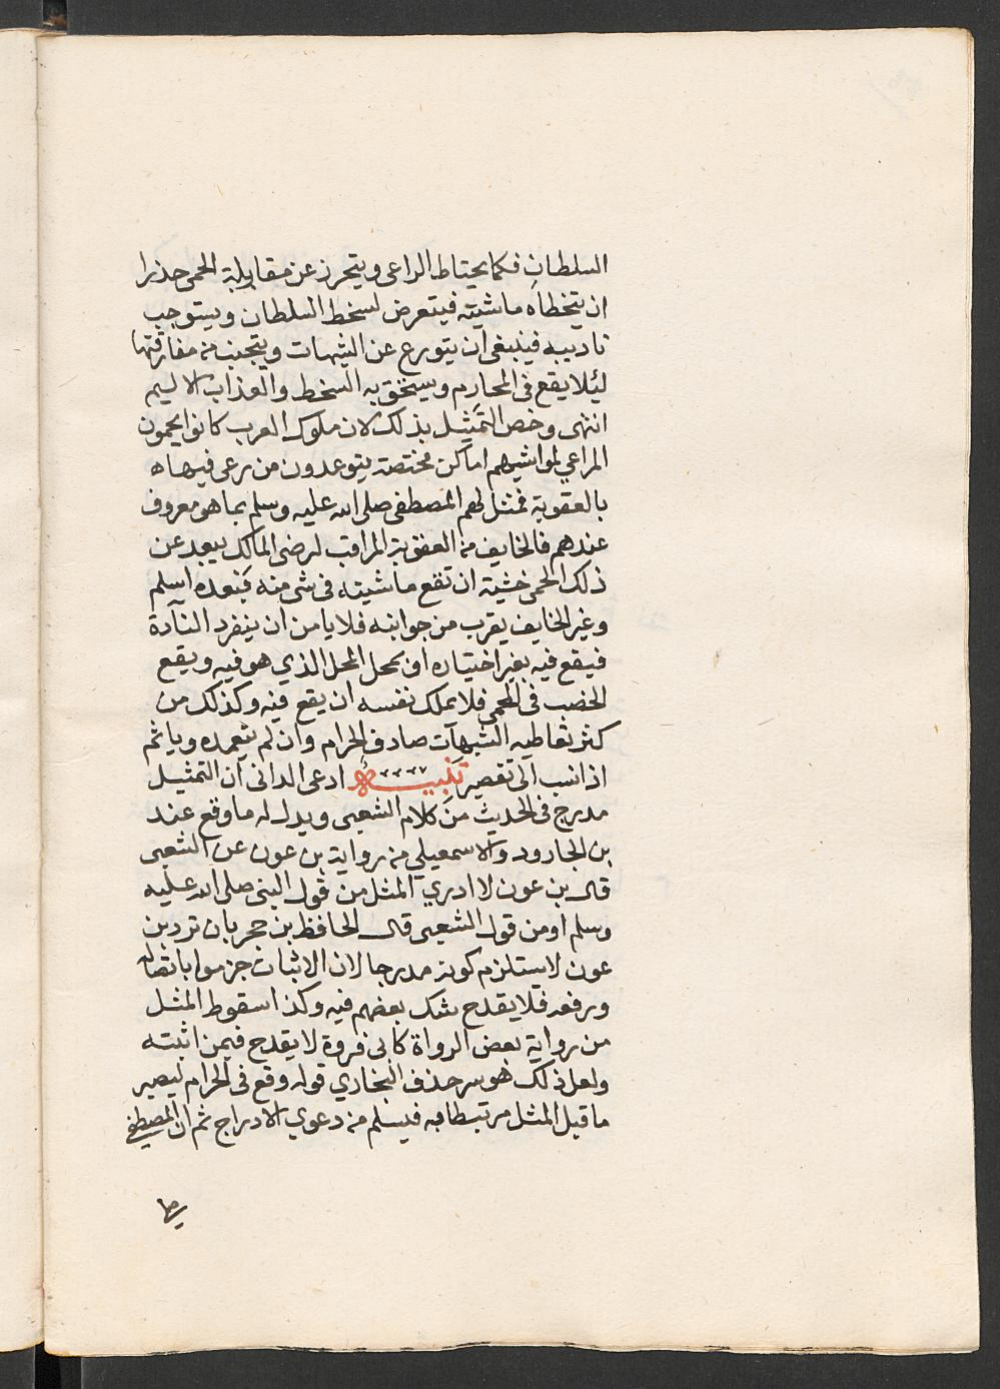 السلطان فكما يحتاط الراعي ويتحرز عن مقابلة الحمى حذرا
ان يتخطاه ماشيته فيتعرض لسخط السلطان ويستوجب
تاديبه فينبغي ان يتورع عن الشبهات ويتجنب من مفارقتها
ليلا يقع في المحارم ويستحق به السخط والعذاب الاليم
انتهى وخص التمثيل بذلك لان ملوك العرب كانوا يحمون
المراعي لمواشيهم اماكن مختصة يتوعدون من رعى فيها
بالعقوبة فمثل لهم المصطفى صلى الله عليه وسلم بما هو معروف
عندهم فالخايف من العقوبة المراقب لرضى المالك يبعد عن
ذلك الحمى خشية ان تقع ماشيته في شي منه فبعده اسلم
وغير الخايف يقرب من جوانبه فلا يامن ان ينفرد النادة
فيقع فيه بغير اختياره او يمحل المحل الذي هو فيه ويقع
الخصب في الحمى فلا يملك نفسه ان يقع فيه وكذلك من
كثر تعاطيه الشبهات صادف الحرام وان لم يتعمده وياثم
اذا نسب الى تقصير تنبيه ادعى الداني ان التمثيل
مدرج في الحديث من كلام الشعبي ويدل له ما وقع عند
بن الجارود والاسمعيلي من رواية بن عون عن الشعبي
قال بن عون لا ادري المثل من قول النبي صلى الله عليه
وسلم او من قول الشعبي قال الحافظ بن حجر بان تردد بن
عون لا يستلزم كونه مدرجا لان الاثبات جزموا باتصاله
ورفعه فلا يقدح شك بعضهم فيه وكذا سقوط المثل
من رواية بعض الرواة كابي فروة لا يقدح فيمن اثبته
ولعل ذلك هو سر حذف البخاري قوله وقع في الحرام ليصير
ما قبل المثل مرتبطا به فيسلم من دعوي الادراج ثم ان المصطفى